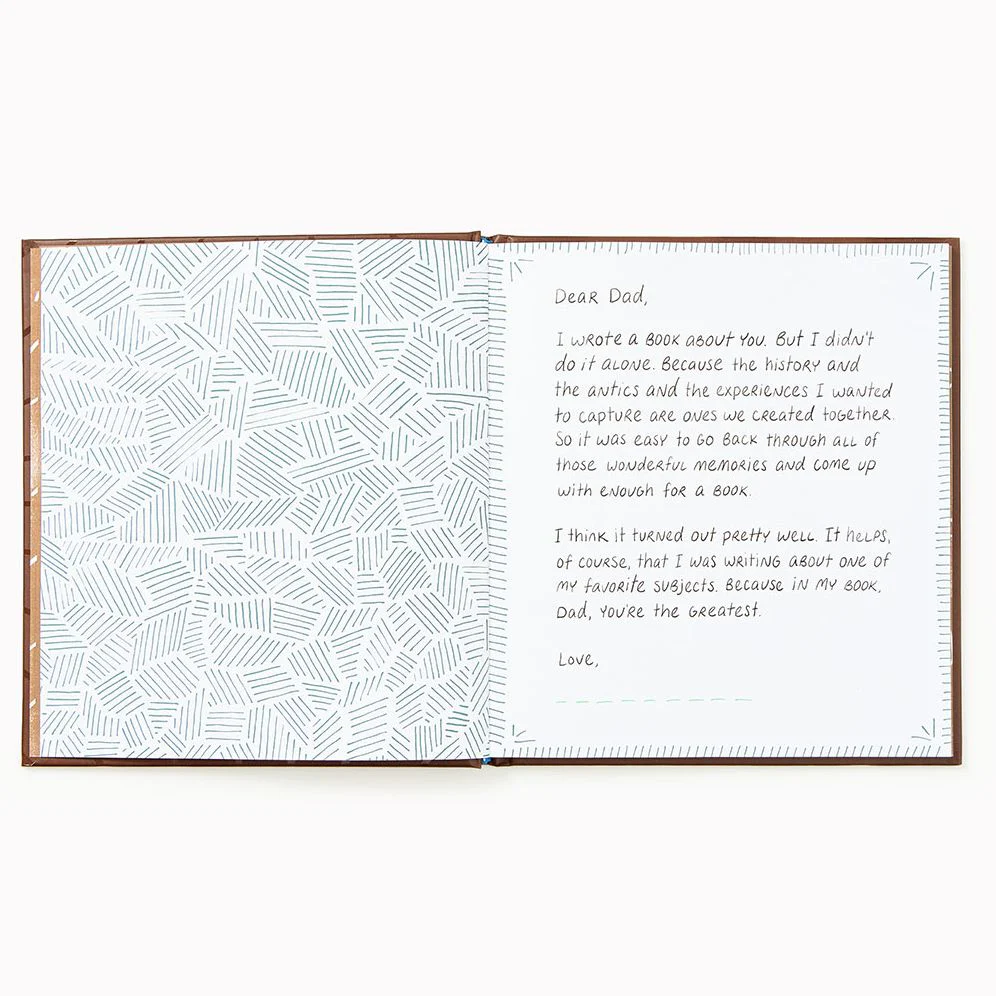 Dear Dad,
I wrote a book about you. But I didn't
do it alone. Because the history and
the antics and the experiences I wanted
to capture are ones we created together.
So it was easy to go back through all of
those wonderful memories and come up
with enough for a book.
I think it turned out pretty well. It helps,
of course, that I was writing about one of
my favorite subjects. Because in my book,
Dad, you're the greatest.
Love,